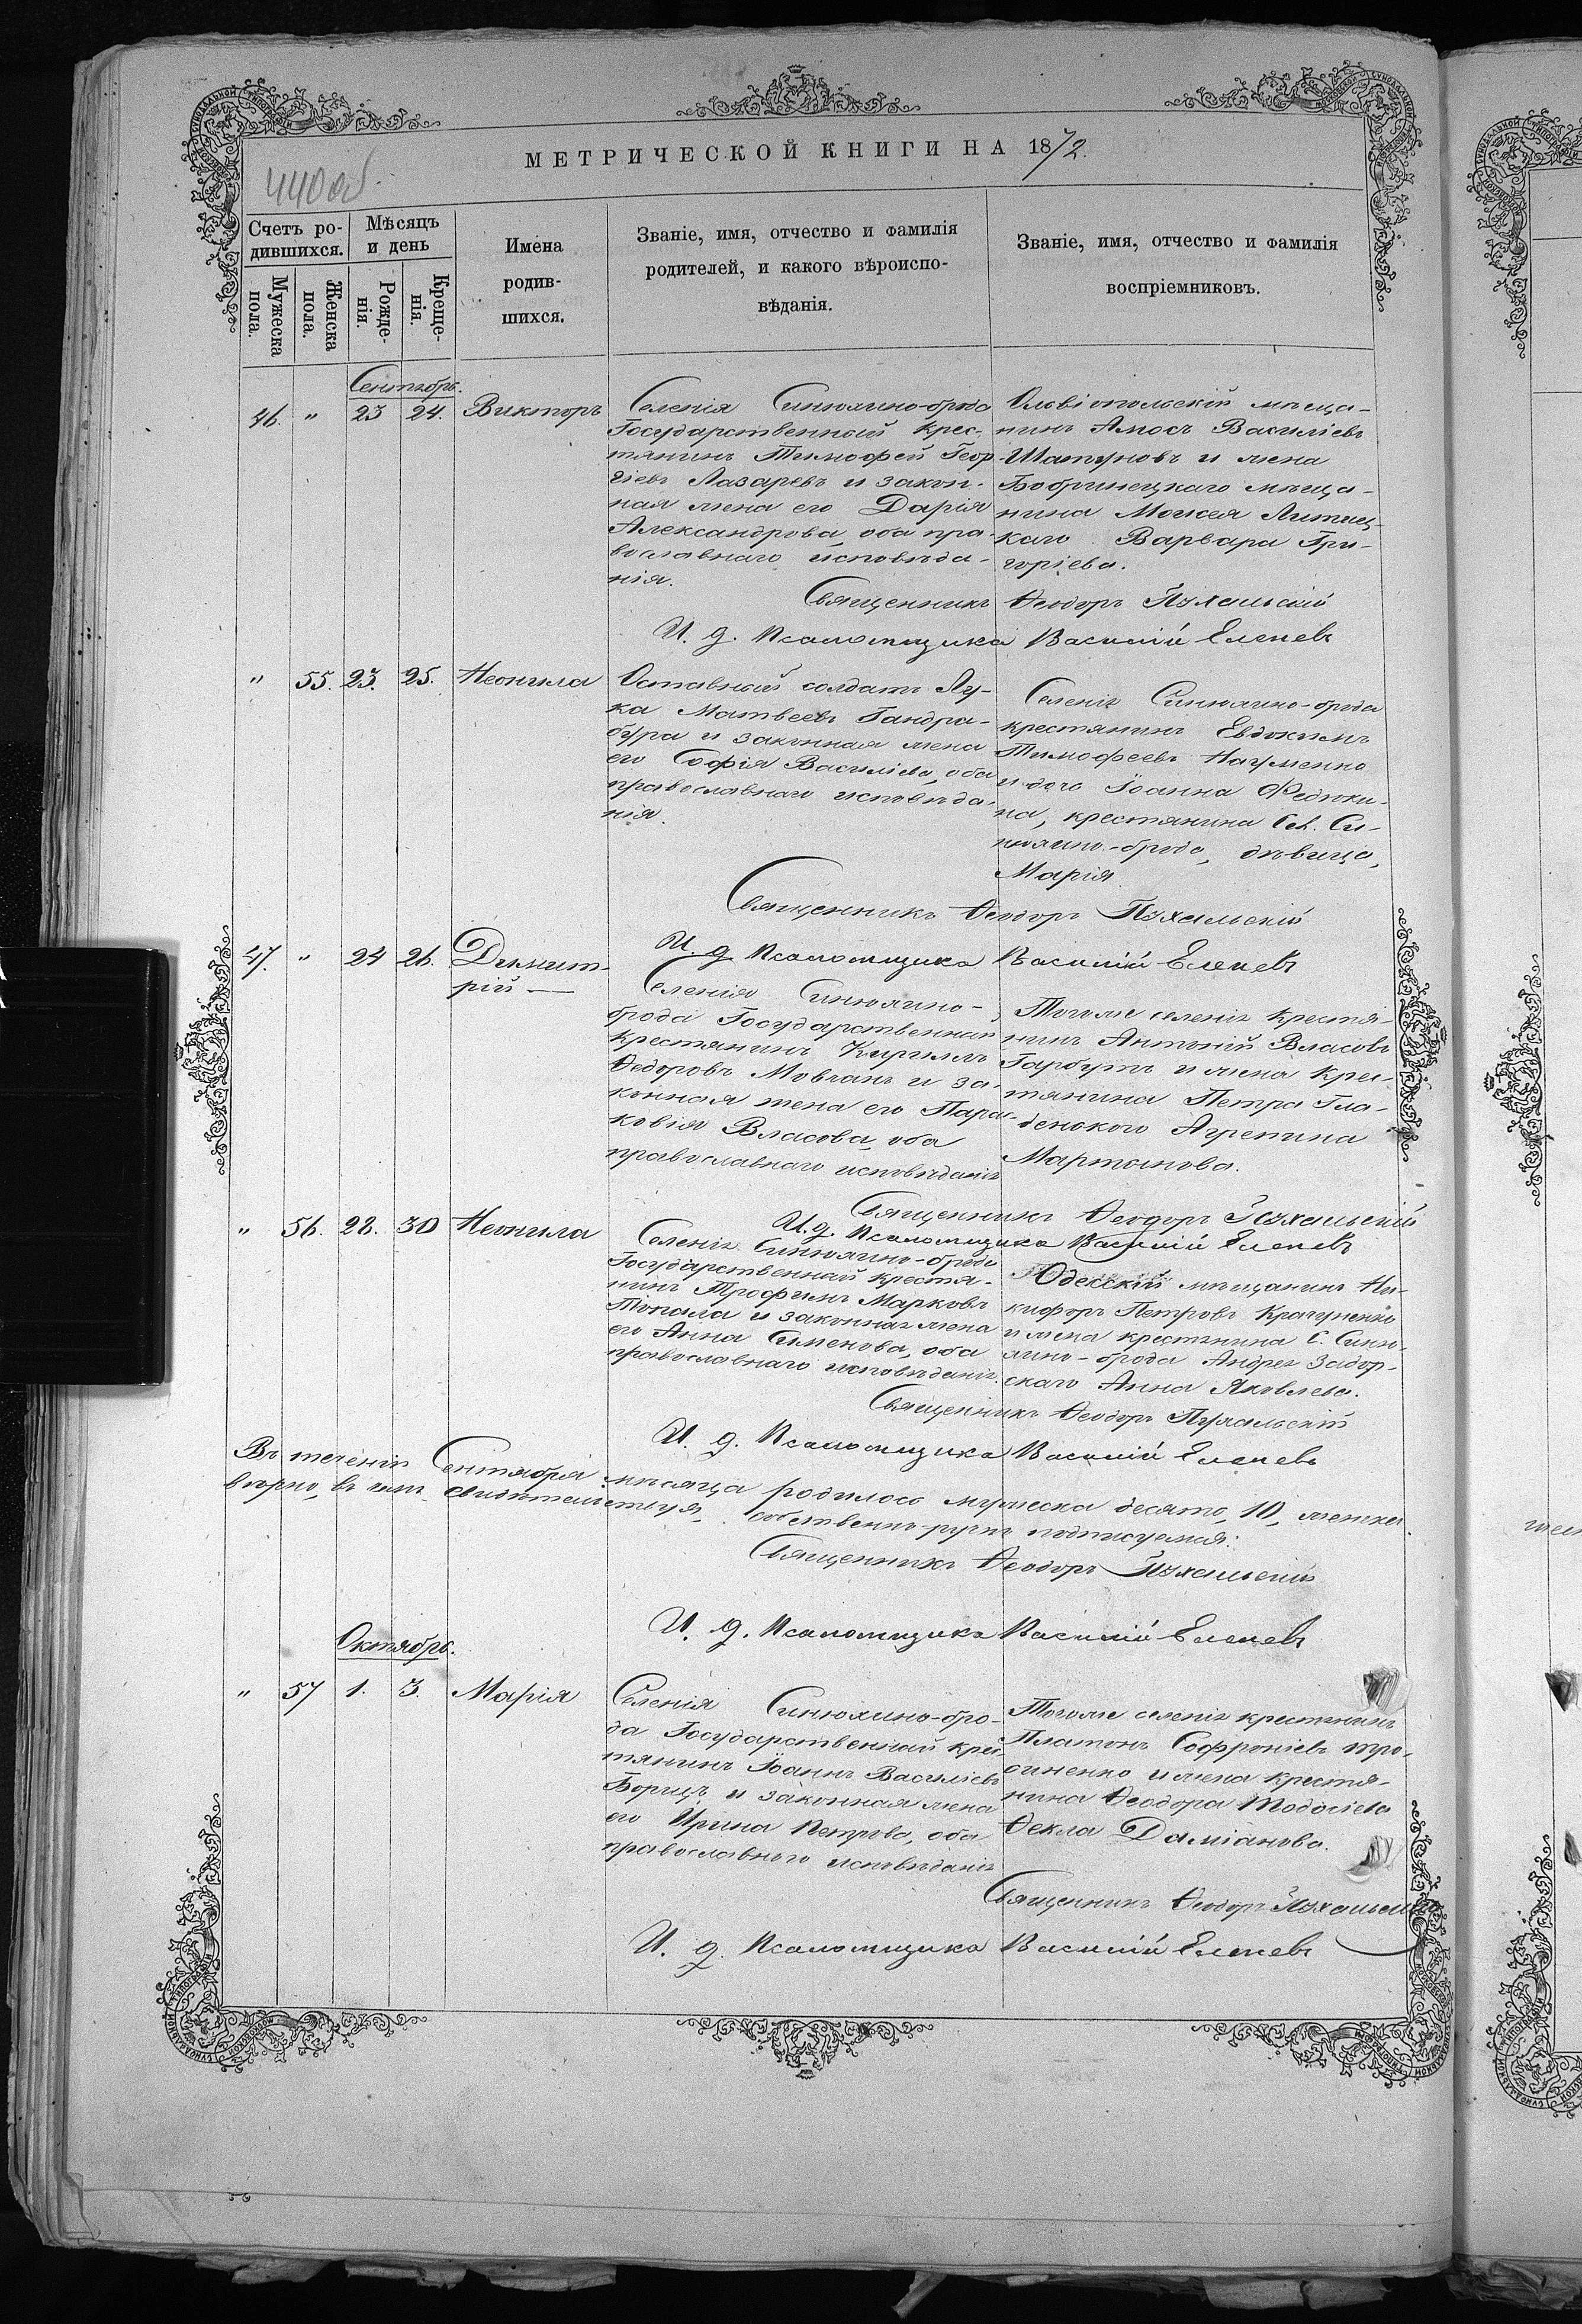 МЕТРИЧЕСКОЙ КНИГИ НА 1872.
440об.
Счетъ ро-
дившихся.
Мужеска
пола.
Женска
пола.
Мѣсяцъ
и день
Рожде-
нія.
Креще-
нія.
Имена
родив-
шихся.
Званіе, имя, отчество и фамилія
родителей, и какого вѣроиспо-
вѣданія.
Званіе, имя, отчество и фамилія
воспріемниковъ.
Сентябрь.
46. " 23 24. Викторъ
Селенія Синюхино-брода
Государственный крес-
тянинъ Тимофей Геор
гіевъ Лазаревъ и закон-
ная жена его Дарія
Александрова, оба пра-
вославнаго исповѣда-
нія.
Ольвіопольскій мѣща-
нинъ Амосъ Василіевъ
Шатуновъ и жена
Бобринецкаго мѣща-
нина Моисея Литиц-
каго Варвара Гри-
горіева.
Священникъ Ѳеодоръ Пухальскій
И. д. Псаломщика Василій Еленевъ
" 55. 23. 25. Неонила
Оставный солдатъ Лу-
ка Матвеевъ Гандра-
бура и законная жена
его Софія Василіева, оба
православнаго исповѣда-
нія.
Селенія Синюхино-брода
крестянинъ Евдокимъ
Тимофеевъ Науменко
и дочь Іоанна Федюки-
на, крестянина Сел. Си-
нюхино-брода, дѣвица,
Марія
Священникъ Ѳеодоръ Пухальскій
И. д. Псаломщика Василій Еленевъ
47. " 24 26. Димит-
рій —
Селенія Синюхино-
брода Государственный
крестянинъ Кириллъ
Ѳедоровъ Мовчанъ и за-
конная жена его Парас-
ковія Власова, оба
православнаго исповѣданія
Тогоже селенія крестя-
нинъ Антоній Власовъ
Гарбузъ и жена крес-
тянина Петра Гла-
денокого Агрепина
Мартинова.
Священникъ Ѳеодоръ Пухальскій
И. д. Псаломщика Василій Еленевъ
" 56. 28. 30 Неонила
Селенія Синюхино-брода
Государственный крестя-
нинъ Трофимъ Марковъ
Топала и законная жена
его Анна Сименова, оба
православнаго исповѣданія.
Одесскій мѣщанинъ Ни-
кифоръ Петровъ Крачуненко
и жена крестянина С. Синю-
хино-брода Андрея Задор-
скаго Анна Яковлева.
Священникъ Ѳеодоръ Пухальскій
И. д. Псаломщика Василій Еленевъ
Въ теченіи Сентября мѣсяца родилось мужеска десять, 10, женска
вѣрно, въ чемъ свидѣтельствуя, собственно-ручно подписуемся:
Священникъ Ѳеодоръ Пухальскій
И. д. Псаломщика Василій Еленевъ
Октябрь.
" 57 1. 3. Марія
Селенія Синюхино-бро-
да Государственный крес-
тянинъ Іоаннъ Василіевъ
Борщъ и законная жена
его Ирина Петрова, оба
православнаго исповѣданія
Тогоже селенія крестянинъ
Платонъ Софроніевъ Тро-
синенко и жена крестя-
нина Ѳеодора Тодосіева
Ѳекла Даміанова.
Священникъ Ѳеодоръ Пухальскій
И. д. Псаломщика Василій Еленевъ